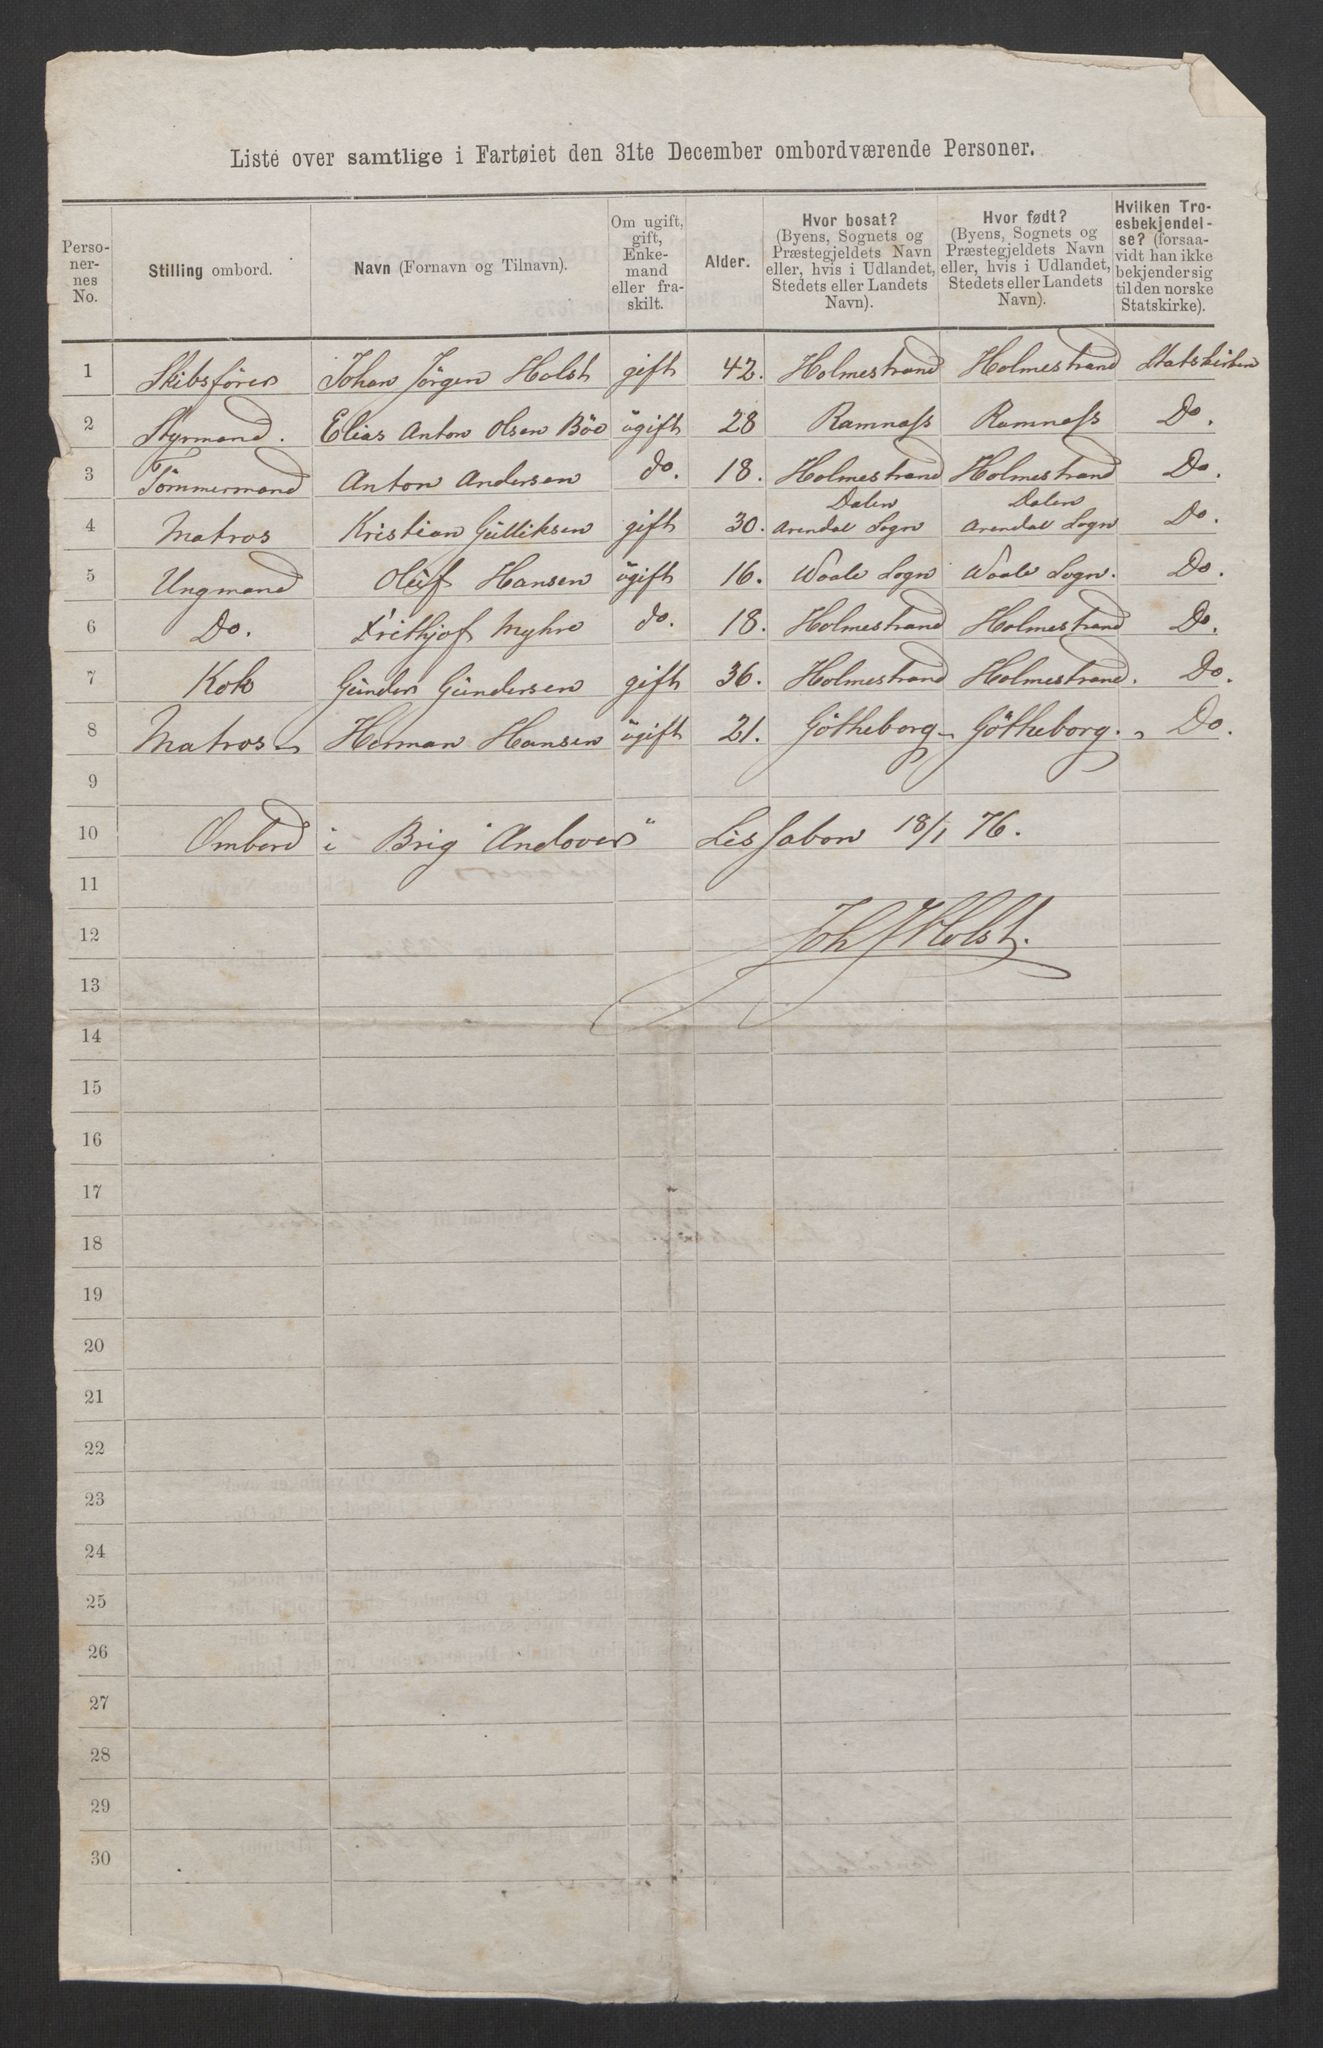 Liste over samtlige i Fartøiet den 31te December ombordværende Personer.
Personernes No. | Stilling ombord. | Navn (Fornavn og Tilnavn). | Om ugift, gift, Enkemand eller fraskilt. | Alder. | Hvor bosat? (Byens, Sognets og Præstegjeldets Navn eller, hvis i Udlandet, Stedets eller Landets Navn). | Hvor født? (Byens, Sognets og Præstegjeldets Navn eller, hvis i Udlandet, Stedets eller Landets Navn). | Hvilken Troesbekjendelse? (forsaavidt han ikke bekjender sig til den norske Statskirke).
1 Skibsförer Johan Jörgen Holst gift 42. Holmestrand Holmestrand Statskirken
2 Styrmand. Elias Anton Olsen Böe ugift 28 Ramnass Ramnass Do.
3 Tömmermand Anton Andersen do. 18. Holmestrand Holmestrand Do.
Dalen Dalen
4 Matros Kristian Gulliksen gift 30. Arendal Sogn Arendal Sogn Do.
5 Ungmand Oluf Hansen ugift 16. Waale Sogn Waale Sogn. Do.
6 Do. Frithjof Myhre do. 18. Holmestrand Holmestrand Do.
7 Kok Gunder Gundersen gift 36. Holmestrand Holmestrand. Do.
8 Matros Herman Hansen ugift 21. Götheborg Götheborg. Do.
9
10 Ombord i Brig "Andover" Lissabon 18/1 76.
11
12 Joh J Holst.
13
14
15
16
17
18
19
20
21
22
23
24
25
26
27
28
29
30